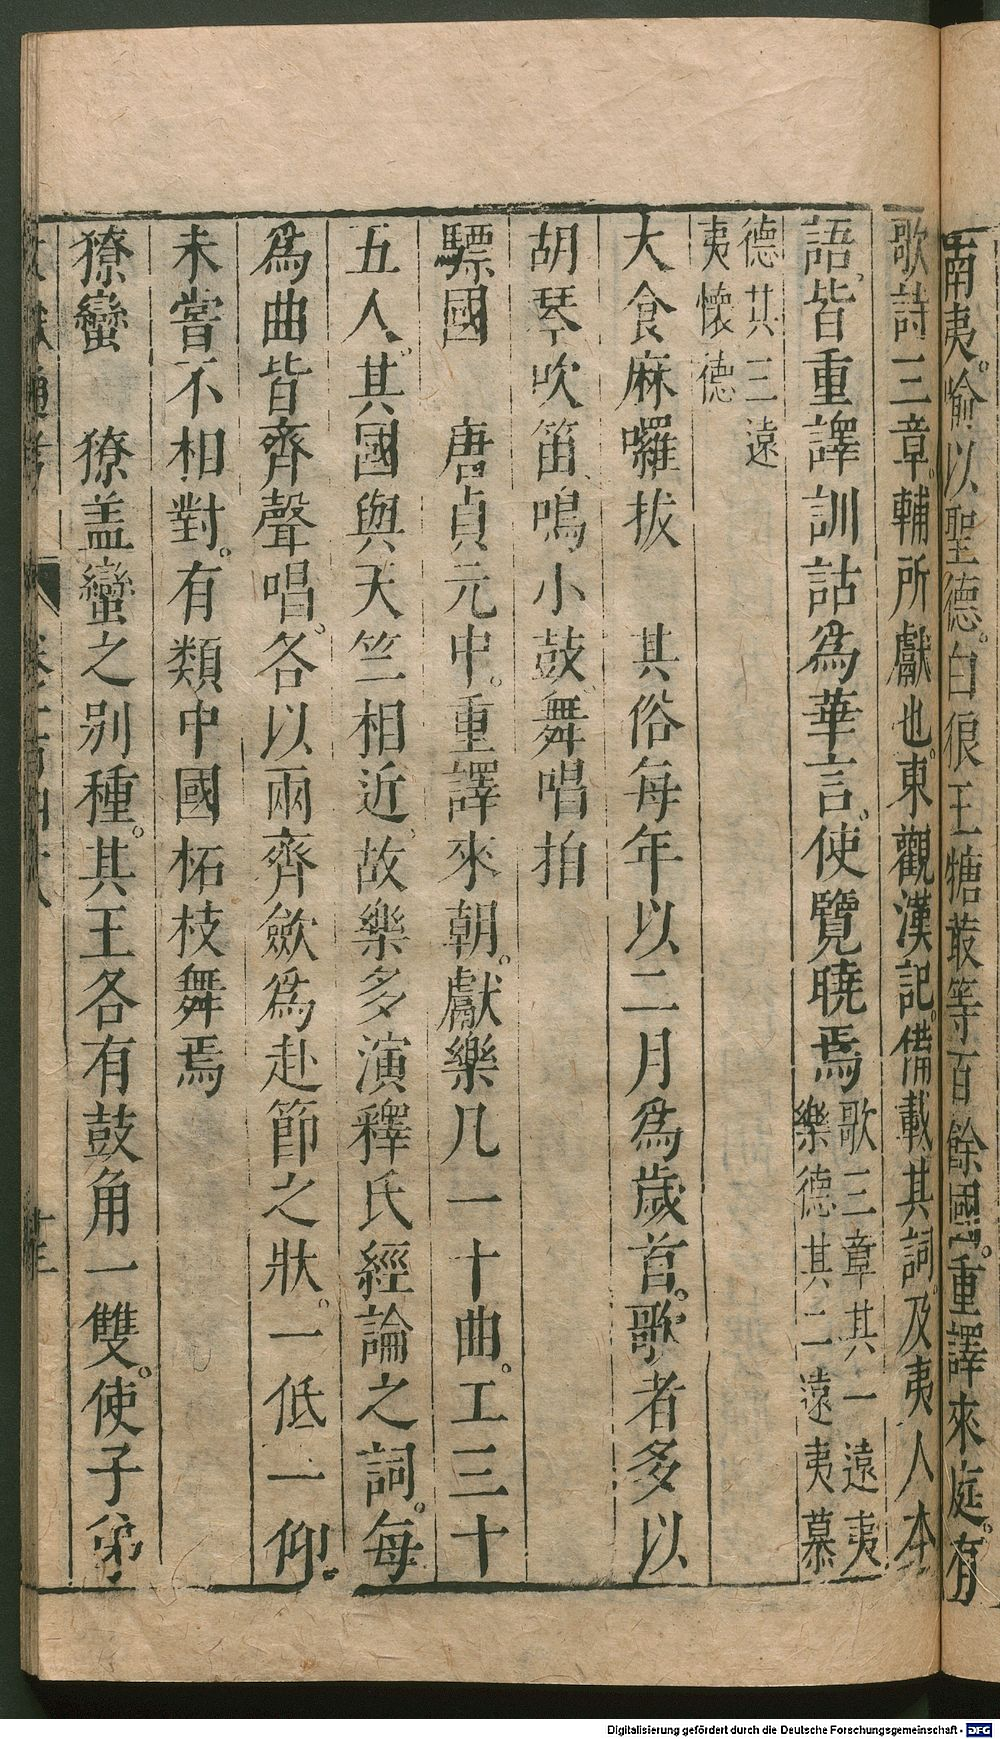 南夷。喻以聖德。白狼王㺊叢等百餘國。重譯來庭。有
歌詩三章。輔所獻也。東觀漢記。備載其詞。及夷人本
語。皆重譯訓詁爲華言。使覽曉焉歌三章其一遠夷樂德其二遠夷慕
德其三遠夷懷德
大食麻囉拔　其俗每年以二月爲歲首。歌者多以
胡琴吹笛鳴小鼓舞唱拍
驃國　唐貞元中。重譯來朝。獻樂几一十曲。工三十
五人。其國與天竺相近。故樂多演釋氏經論之詞。每
爲曲皆齊聲唱。各以兩齊歛爲赴節之狀。一低一仰。
未嘗不相對。有類中國柘枝舞焉
獠蠻　獠盖蠻之别種。其王各有鼓角一雙。使子弟
Digitalisierung gefördert durch die Deutsche Forschungsgemeinschaft - DFG